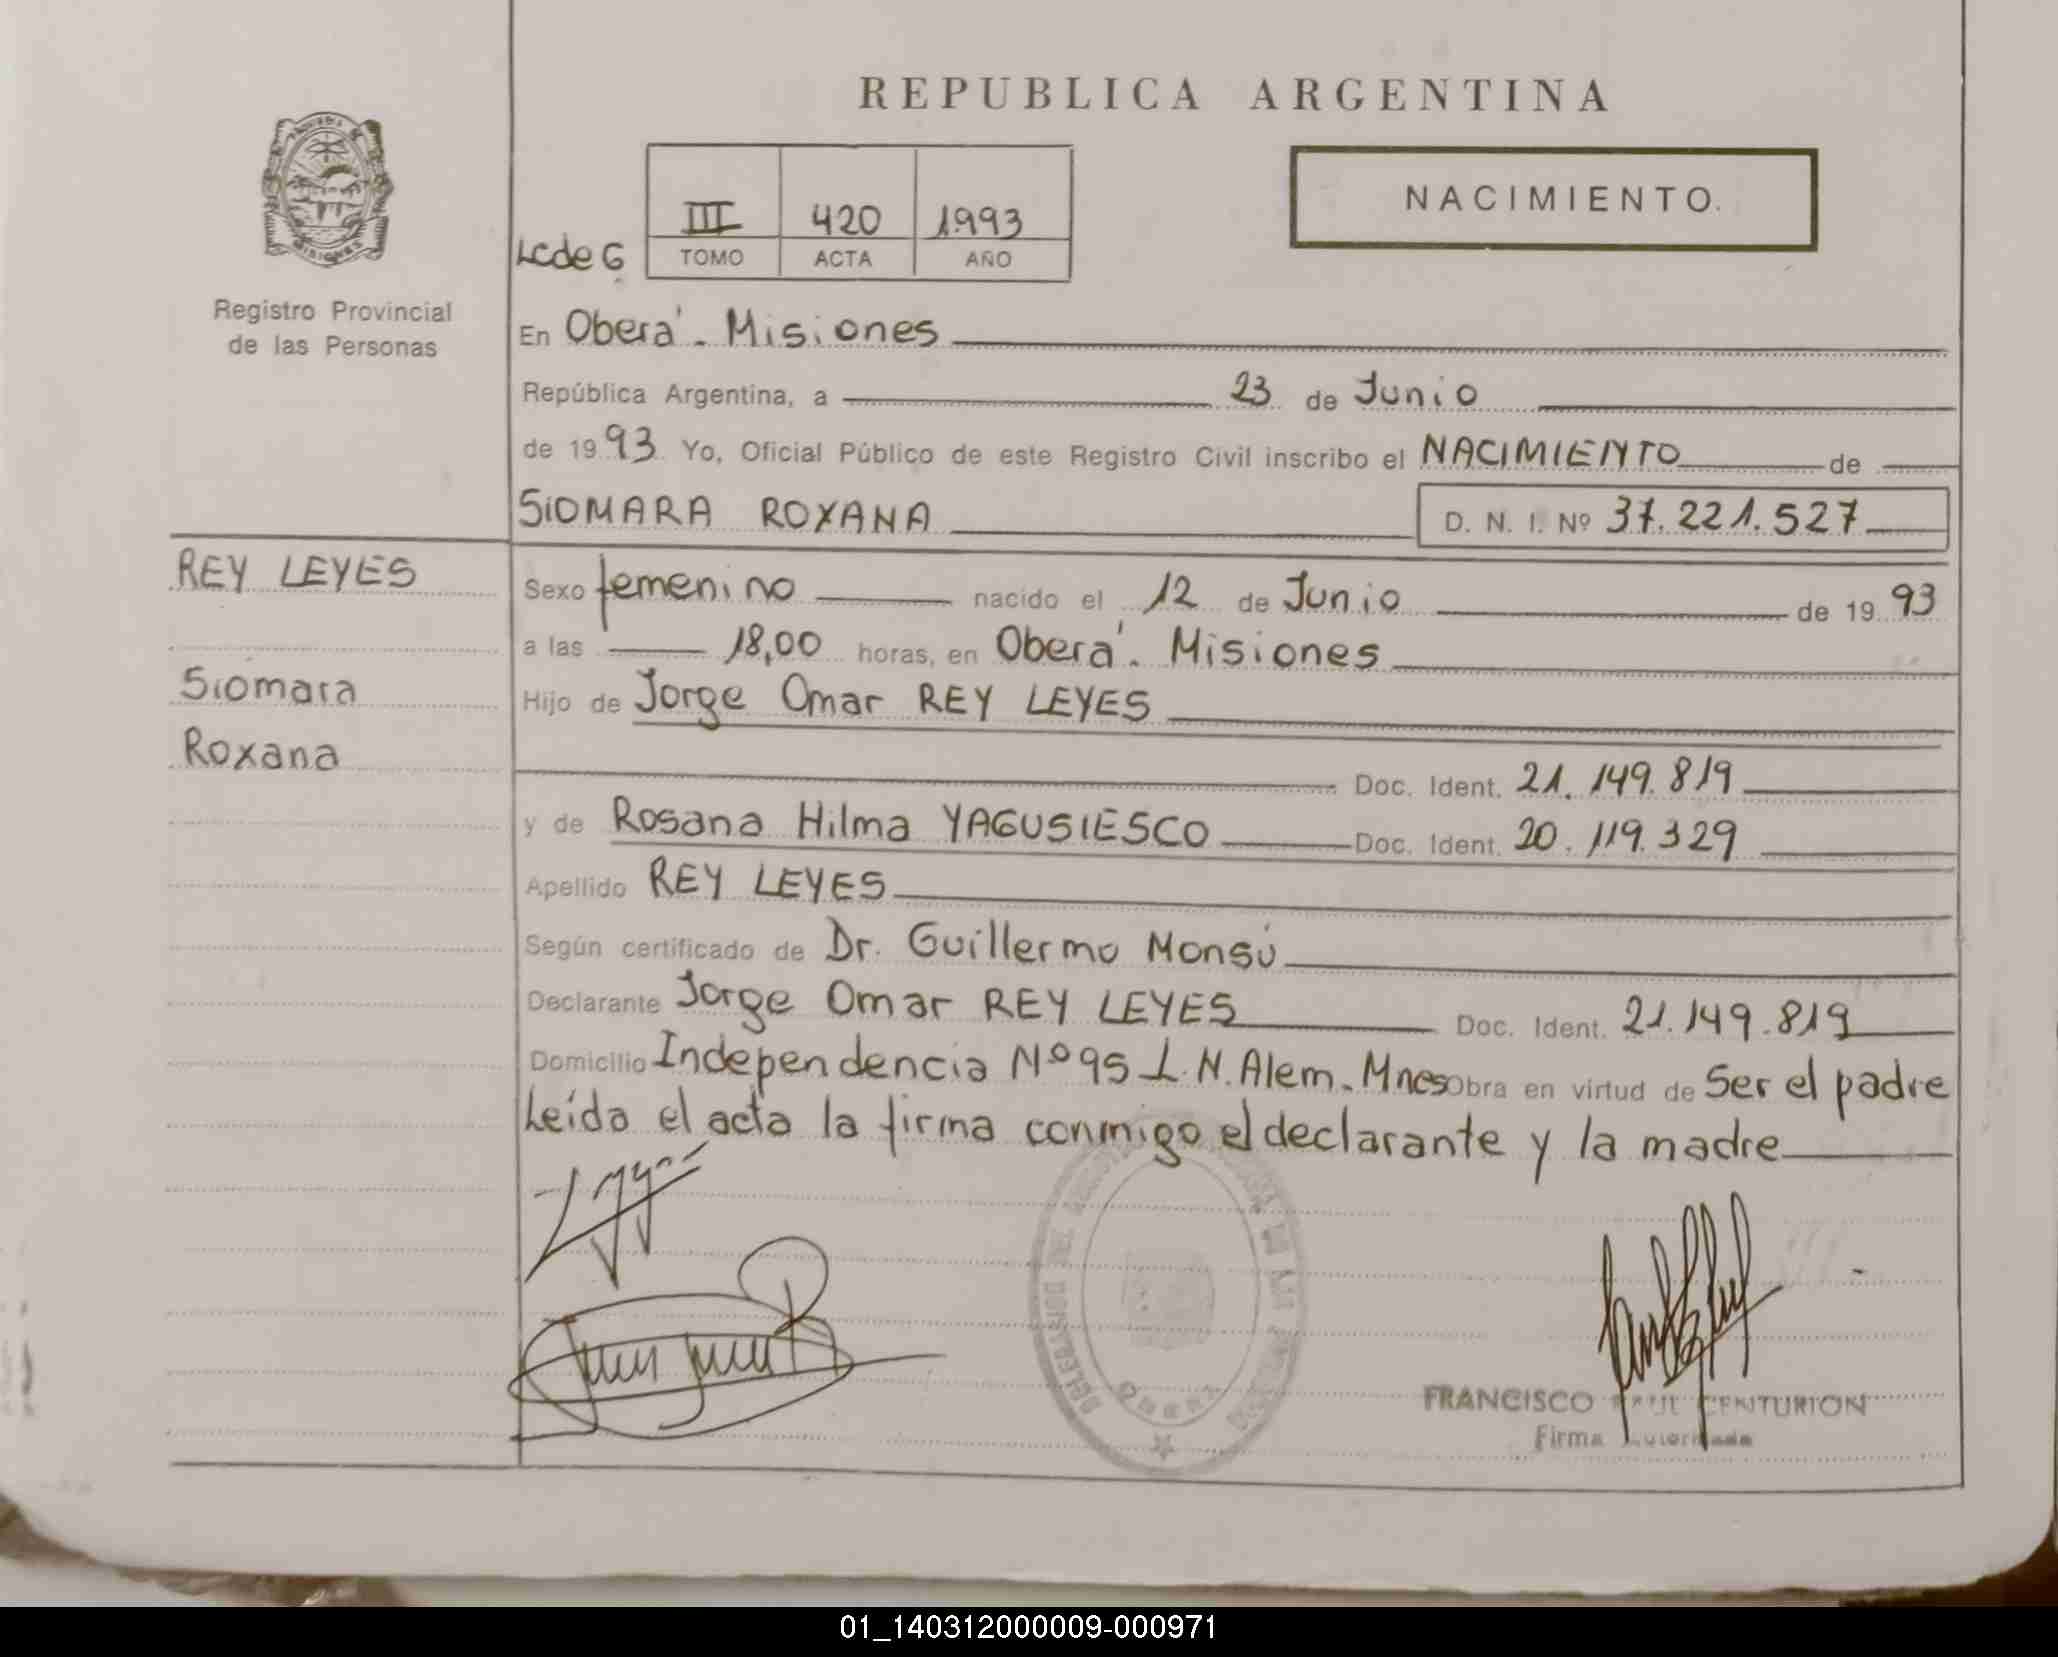 REPUBLICA ARGENTINA
NACIMIENTO.
III 420 1993
Lcde G TOMO ACTA AÑO
Registro Provincial
de las Personas
En Oberá. Misiones
República Argentina, a 23 de Junio
de 1993 Yo, Oficial Público de este Registro Civil inscribo el NACIMIENTO de
SIOMARA ROXANA D. N. I. Nº 37.221.527
REY LEYES
Siomara
Roxana
Sexo femenino nacido el 12 de Junio de 1993
a las 18,00 horas, en Oberá. Misiones
Hijo de Jorge Omar REY LEYES
Doc. Ident. 21.149.819
y de Rosana Hilma YAGUSIESCO Doc. Ident. 20.119.329
Apellido REY LEYES
Según certificado de Dr. Guillermo Monsú
Declarante Jorge Omar REY LEYES Doc. Ident. 21.149.819
Domicilio Independencia Nº 95 L.N. Alem. Mnes Obra en virtud de Ser el padre
Leída el acta la firma conmigo el declarante y la madre
FRANCISCO RAUL CENTURION
Firma Autorizada
OBERA
01_140312000009-000971